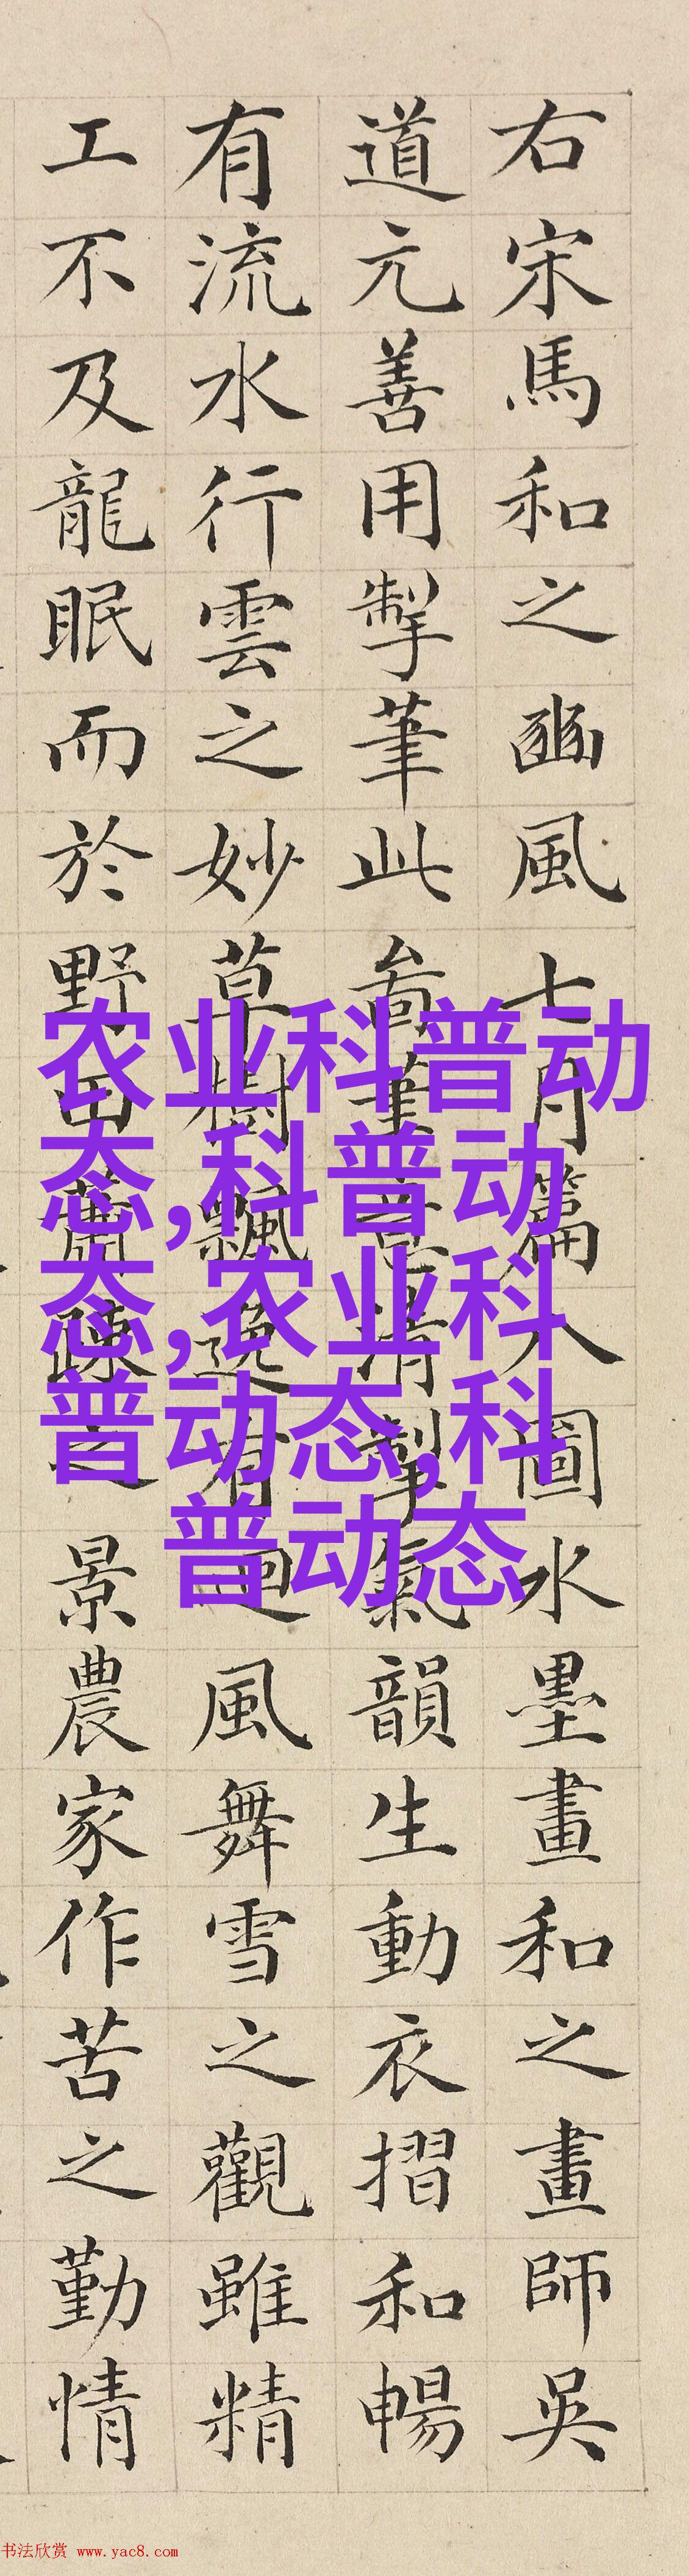 右宋馬和之豳風七月篇八圖水墨畫和之畫師吳
道元善用掣筆此啚筆意清掣氣韻生動衣摺和暢
有流水行雲之妙草樹飄逸有迴風舞雪之觀雖精
工不及龍眠而於野田蕭疎之景農家作苦之勤情
农业科普动
态,科普动
态,农业科
普动态,科
普动态
书法欣赏 www.yac8.com